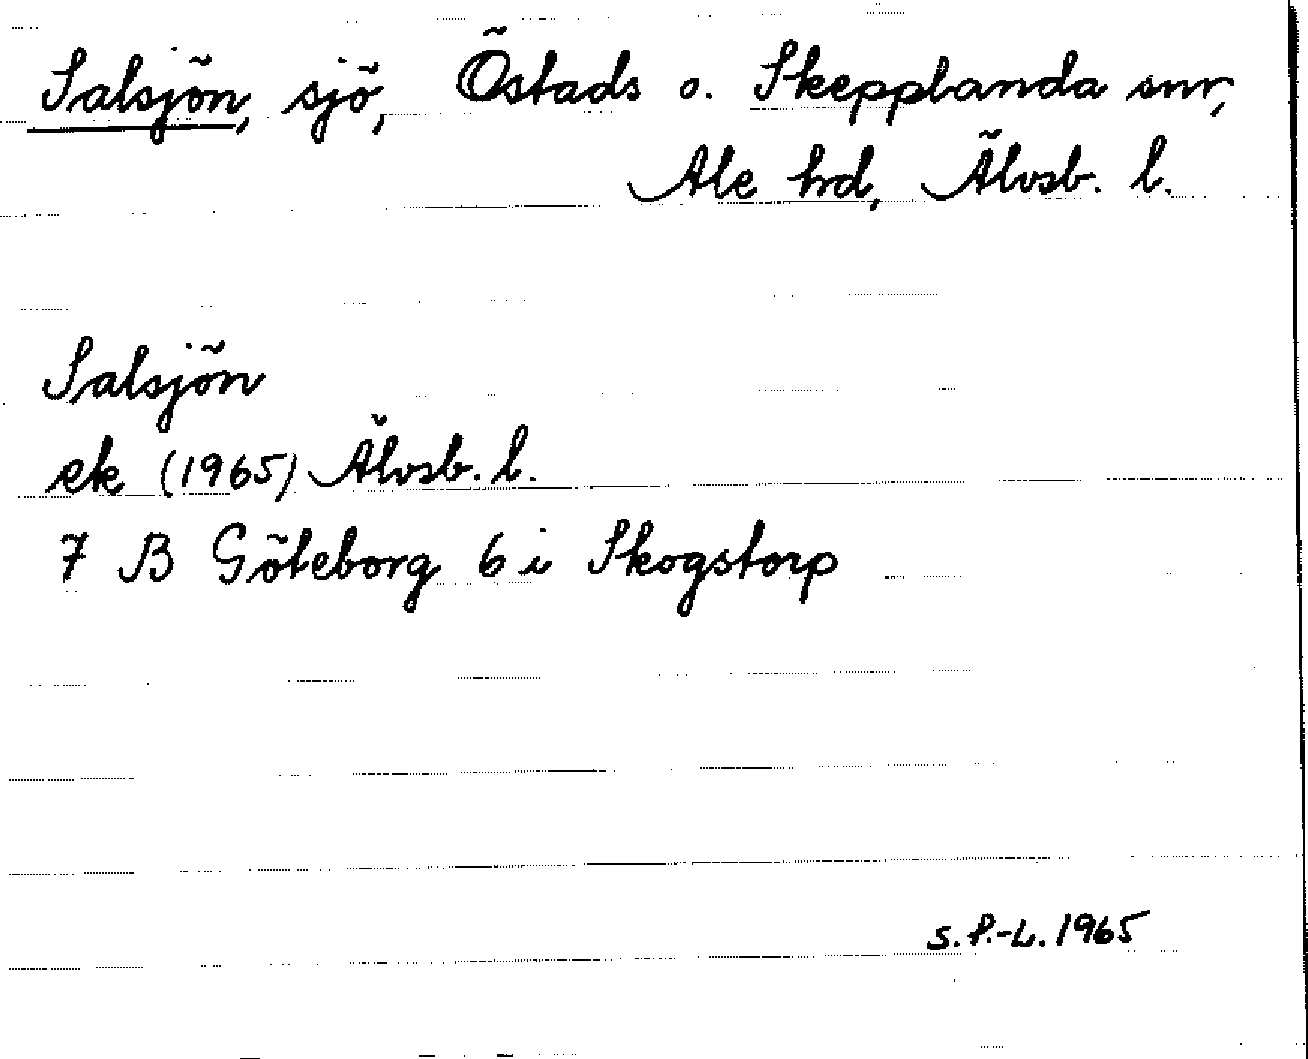 Salsjön, sjö, Östads o. Skepplanda snr,
Ale hd, Älvsb. l.
Salsjön
ek (1965) Älvsb. l.
7 B Göteborg 6 i Skogstorp
S.P.-L. 1965